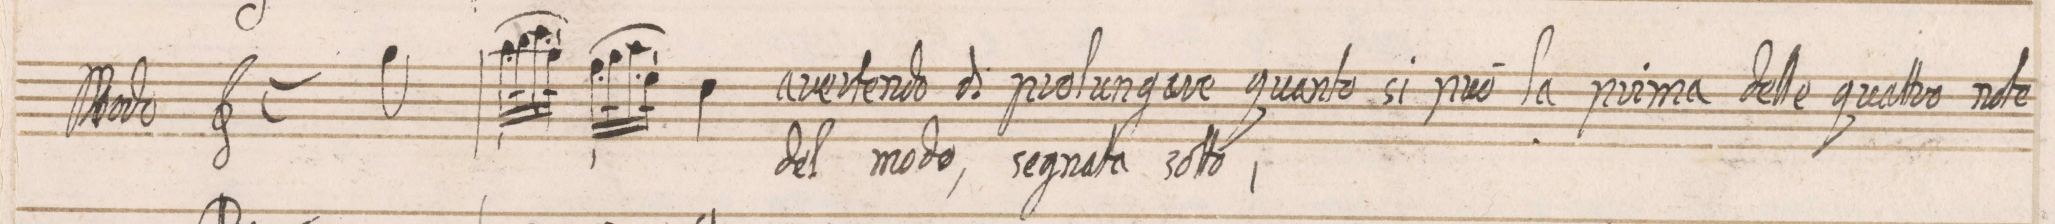 Modo avertendo di prolungare quanto si può la prima delle quattro note
del modo, segnata sotto,